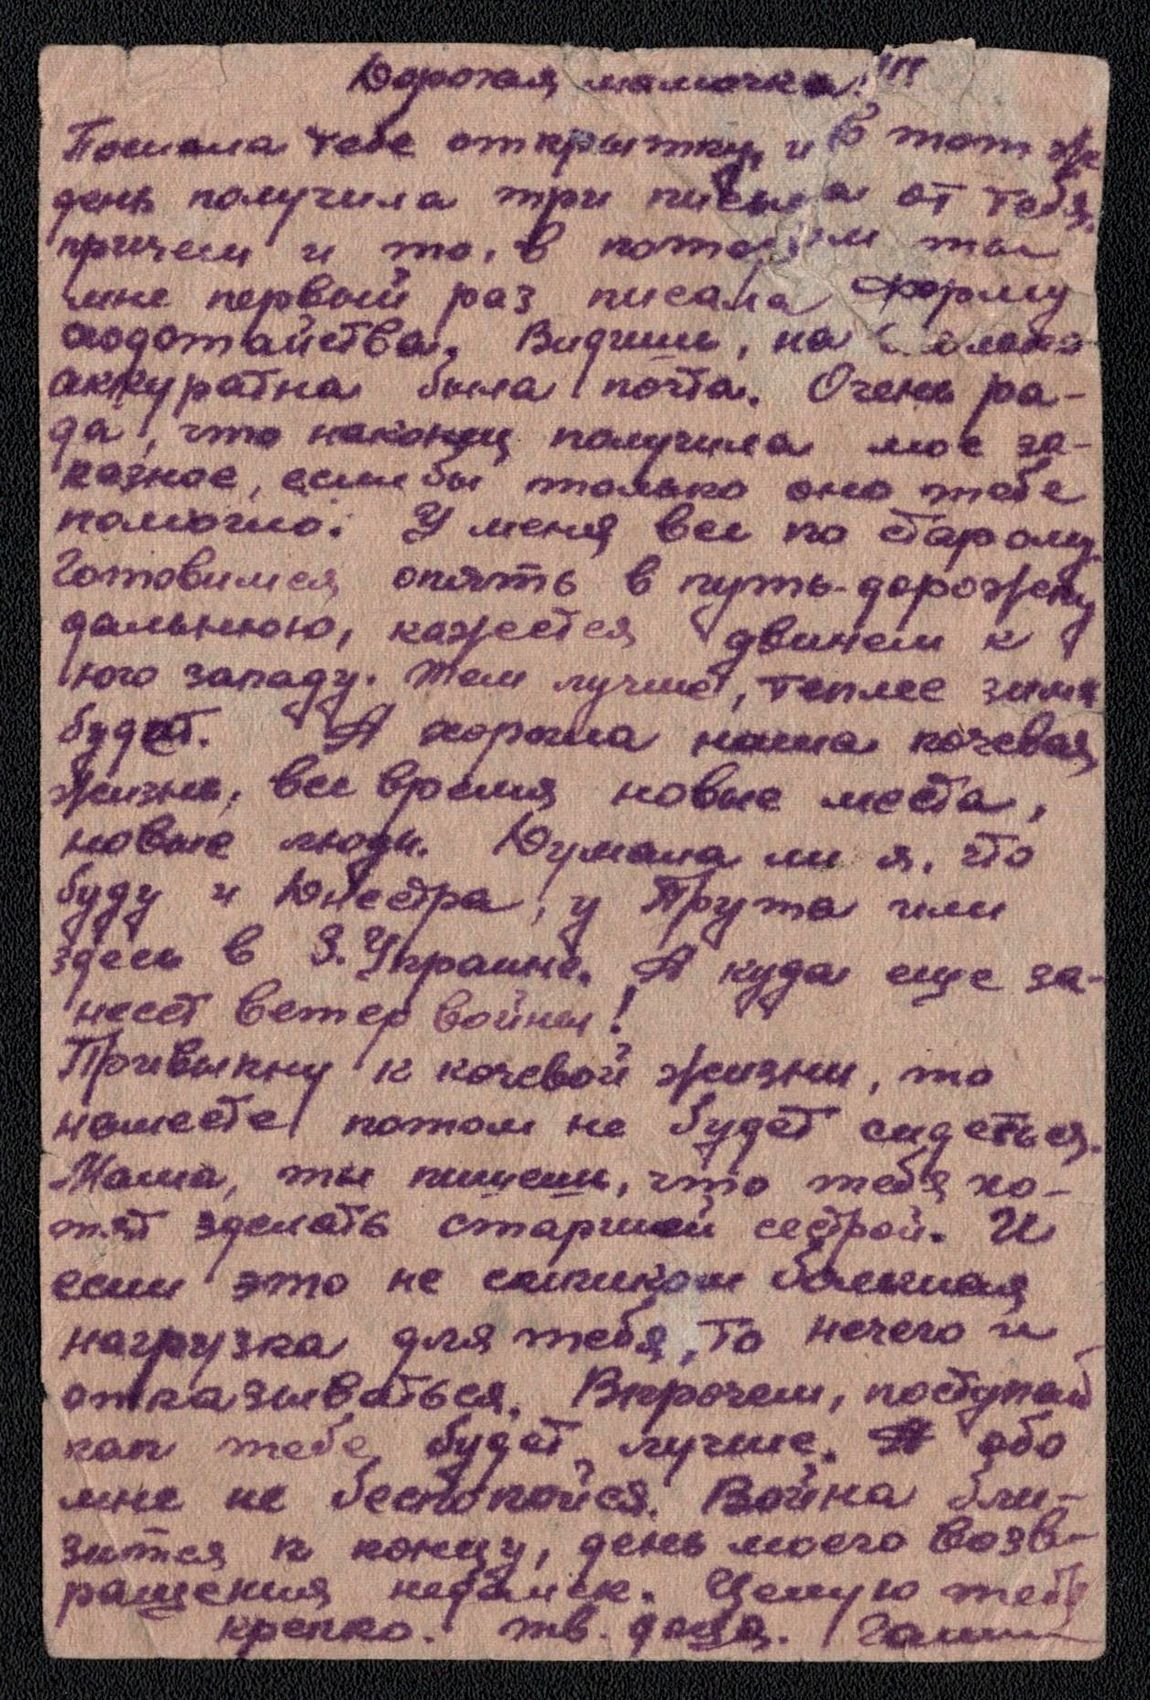 Дорогая мамочка!!!!
Послала тебе открытку, и в тот же
день получила три письма от тебя,
причем и то, в котором ты
мне первый раз писала форму
ходотайства. Видишь, на сколько
аккуратна была почта. Очень ра-
да, что наконец получила мое за-
казное, если бы только оно тебе
помогло. У меня все по старому.
Готовимся опять в путь-дорожку
дальнюю, кажется двинем к
юго западу. Тем лучше, теплее зима
будет. А хороша наша кочевая
жизнь, все время новые места,
новые люди. Думала ли я, что
буду у Днестра, у Прута или
здесь в З. Украине. А куда еще за-
несет ветер войны!
Привыкну к кочевой жизни, то
наместе потом не будет сидеться.
Мама, ты пишеш, что тебя хо-
тят зделать старшей сестрой. И
если это не слишком большая
нагрузка для тебя, то нечего и
отказываться. Впрочем, поступай
как тебе будет лучше. А обо
мне не беспокойся. Война бли-
зится к концу, день моего возв-
ращения недалек. Целую тебя
крепко. тв. доца. Галина